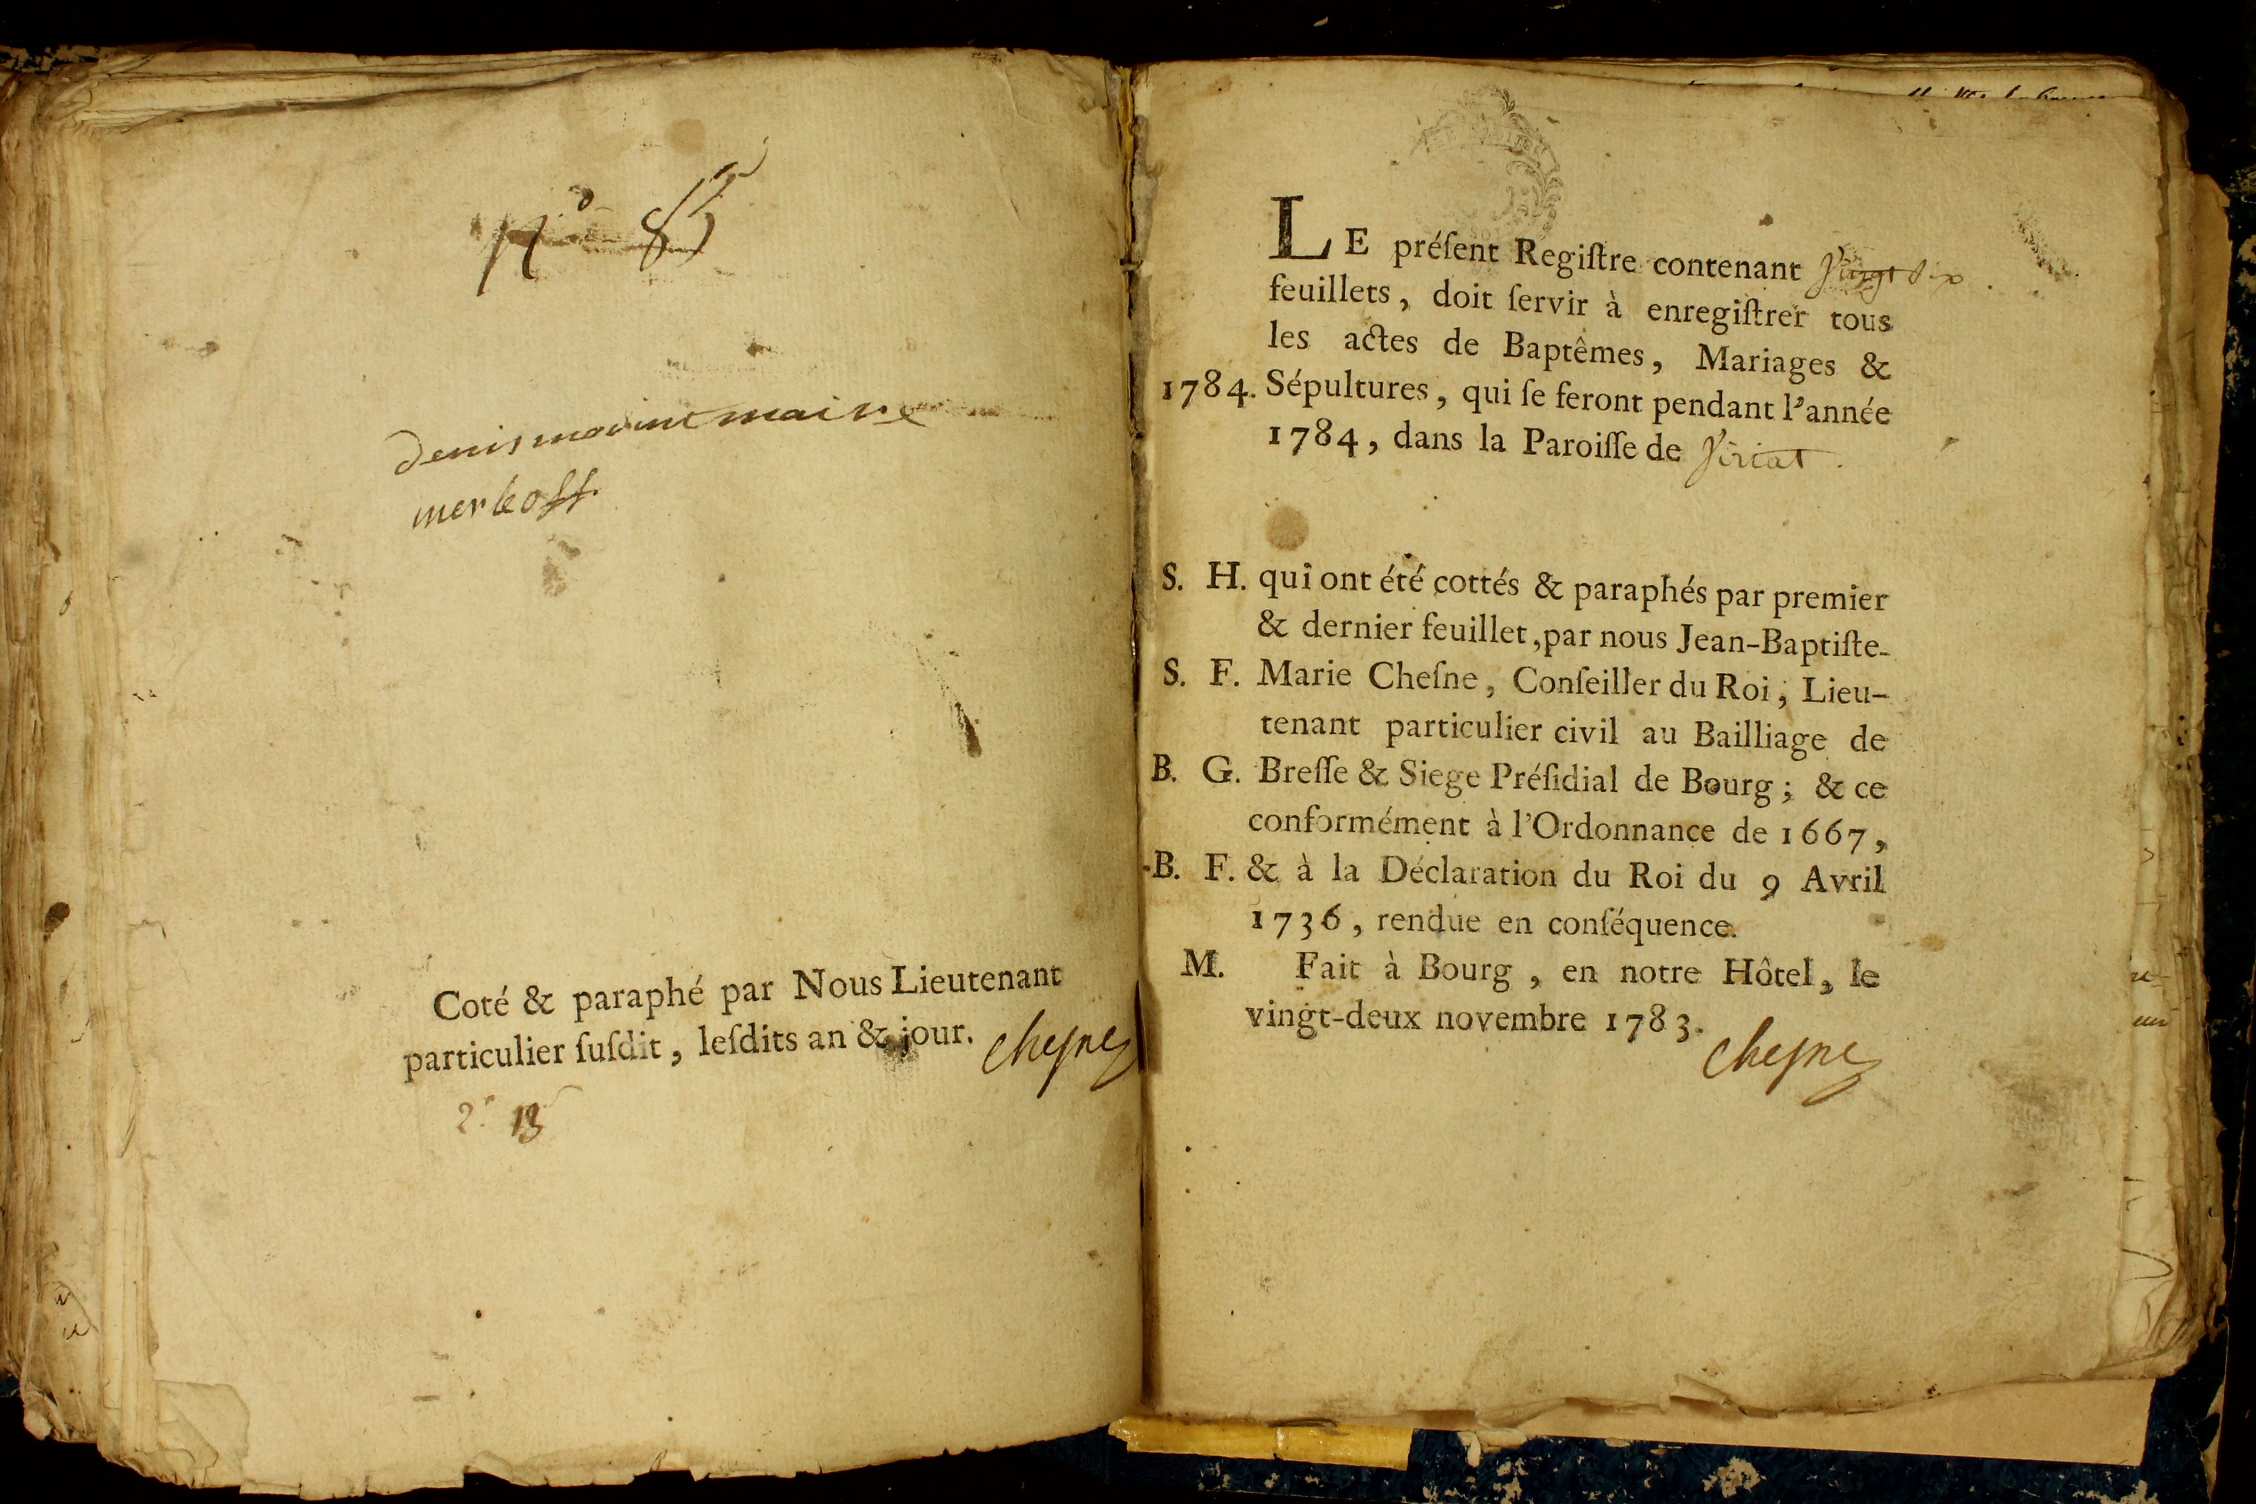 N.o 85
denis
merleoff.
Coté & paraphé par Nous Lieutenant
particulier ſuſdit, leſdits an & jour. Cheſne
2.e 13
LE préſent Regiſtre contenant Vingt Six
feuillets, doit ſervir à enregiſtrer tous
les actes de Baptêmes, Mariages &
1784. Sépultures, qui ſe feront pendant l'année
1784, dans la Paroiſſe de Viriat.
S. H. qui ont été cottés & paraphés par premier
& dernier feuillet, par nous Jean-Baptiſte-
S. F. Marie Cheſne, Conſeiller du Roi, Lieu-
tenant particulier civil au Bailliage de
B. G. Breſſe & Siege Préſidial de Bourg; & ce
conformément à l'Ordonnance de 1667,
B. F. & à la Déclaration du Roi du 9 Avril
1736, rendue en conſéquence.
M. Fait à Bourg, en notre Hôtel, le
vingt-deux novembre 1783.
Cheſne